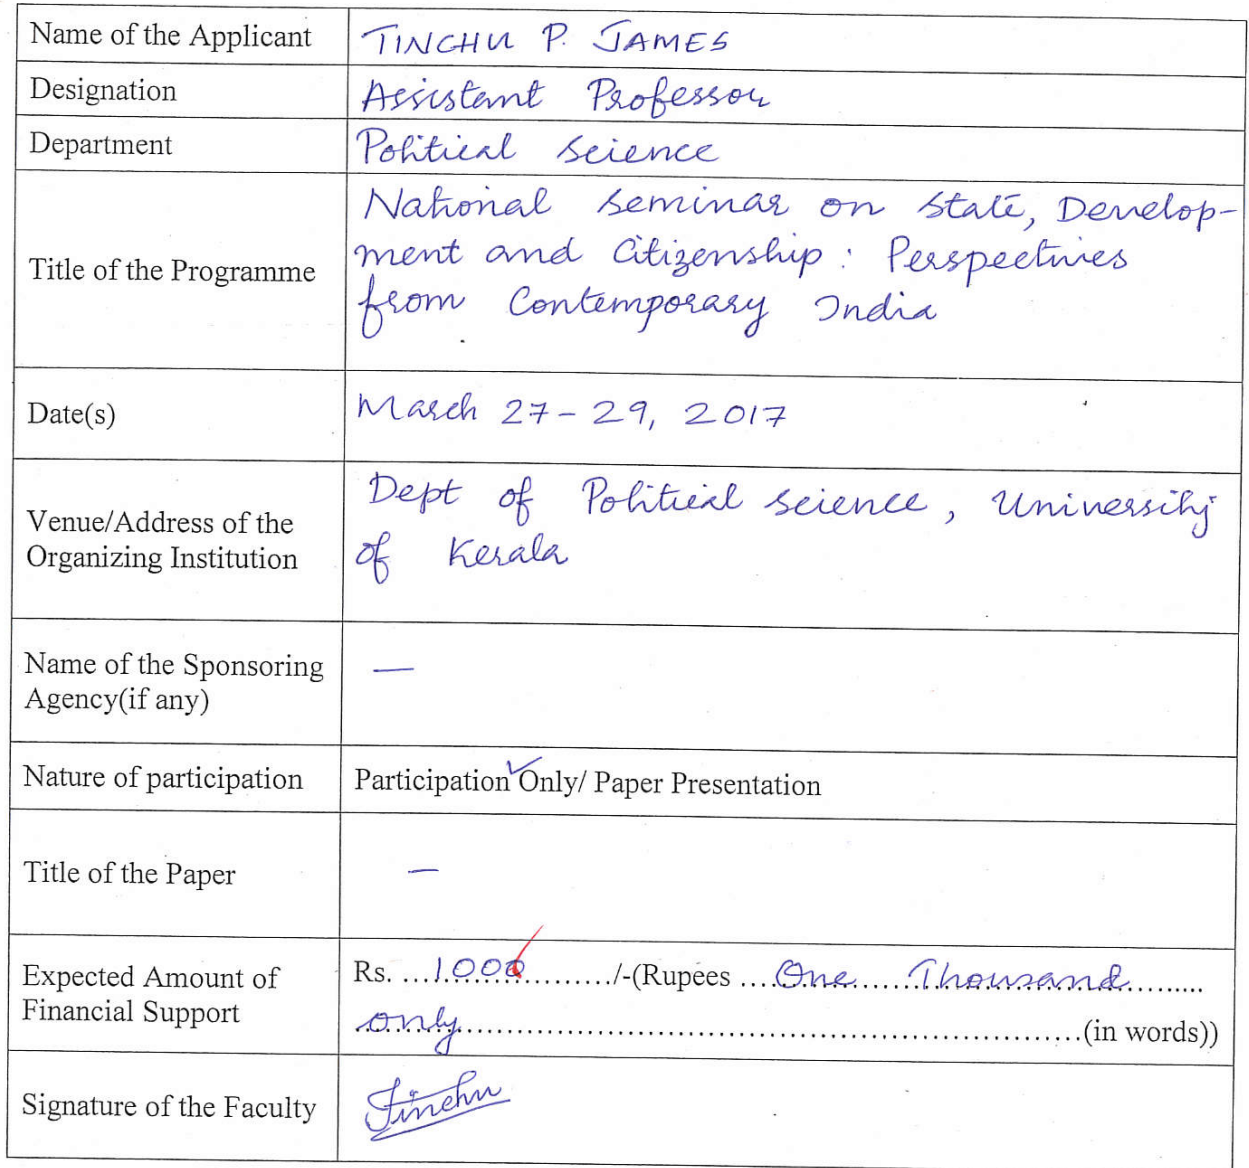 Name of the Applicant TINCHU P. JAMES
Designation Assistant Professor
Department Political Science
Title of the Programme
National Seminar on State, Develop-
ment and Citizenship : Perspectives
from Contemporary India
Date(s) March 27-29, 2017
Venue/Address of the
Organizing Institution
Dept of Political Science, University
of Kerala
Name of the Sponsoring
Agency(if any)
—
Nature of participation Participation ✓ Only/ Paper Presentation
Title of the Paper —
Expected Amount of
Financial Support
Rs. ....1000............/-(Rupees ....One......Thousand.......
only............................................................(in words))
Signature of the Faculty Tinchu